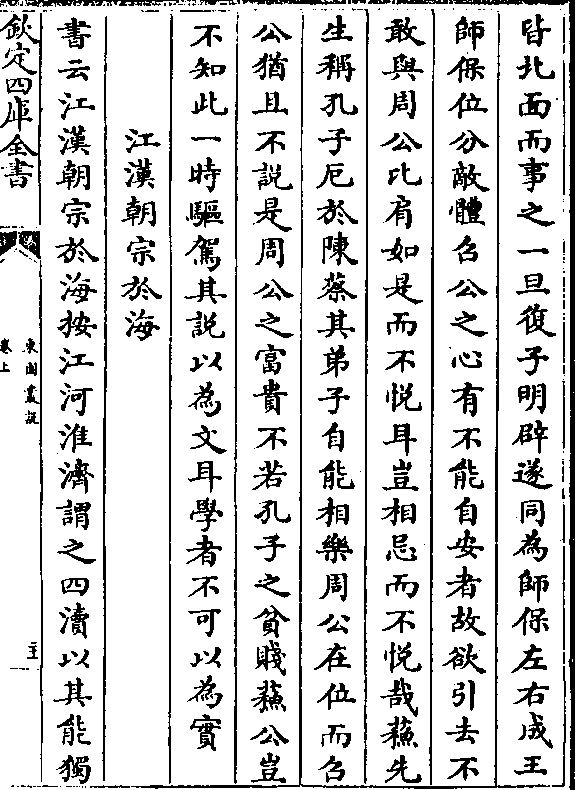 皆北面而事之一旦復子明辟遂同為師保左右成王
師保位分敵體召公之心有不能自安者故欲引去不
敢與周公比肩如是而不悅耳豈相忌而不悅哉蘇先
生稱孔子厄於陳蔡其弟子自能相樂周公在位而召
公猶且不說是周公之富貴不若孔子之貧賤蘇公豈
不知此一時驅駕其説以為文耳學者不可以為實
江漢朝宗於海
書云江漢朝宗於海按江河淮濟謂之四瀆以其能獨
欽定四庫全書
東園叢說
卷上